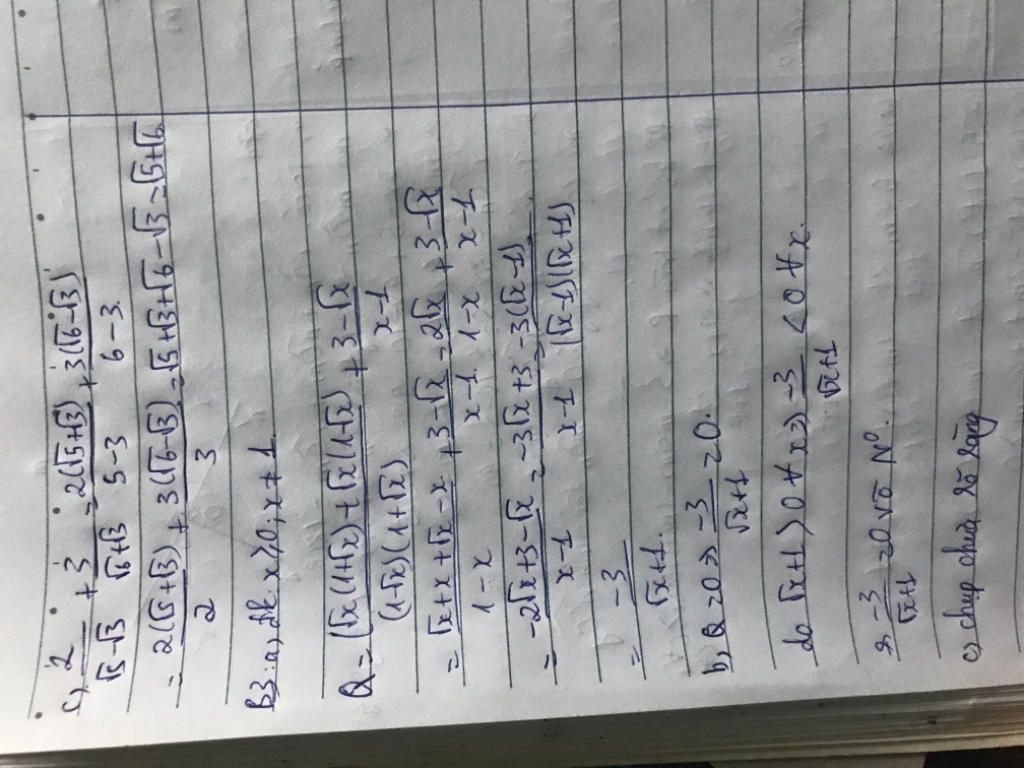 c) 2/(√5-√3) + 3/(√6+√3) = 2(√5+√3)/(5-3) + 3(√6-√3)/(6-3)
= 2(√5+√3)/2 + 3(√6-√3)/3 = √5+√3+√6-√3 = √5+√6
B3: a, đk x ≥ 0, x ≠ 1
Q = (√x(1+√x) + √x(1-√x))/((1-√x)(1+√x)) + (3-√x)/(x-1)
= (√x+x+√x-x)/(1-x) + (3-√x)/(x-1) = 2√x/(1-x) + (3-√x)/(x-1)
= (-2√x+3-√x)/(x-1) = (-3√x+3)/(x-1) = -3(√x-1)/((√x-1)(√x+1))
= -3/(√x+1)
b) Q = 0 => -3/(√x+1) = 0.
do √x+1 > 0 ∀x => -3/(√x+1) < 0 ∀x.
=> -3/(√x+1) = 0 vô N⁰.
c) chụp chưa rõ ràng